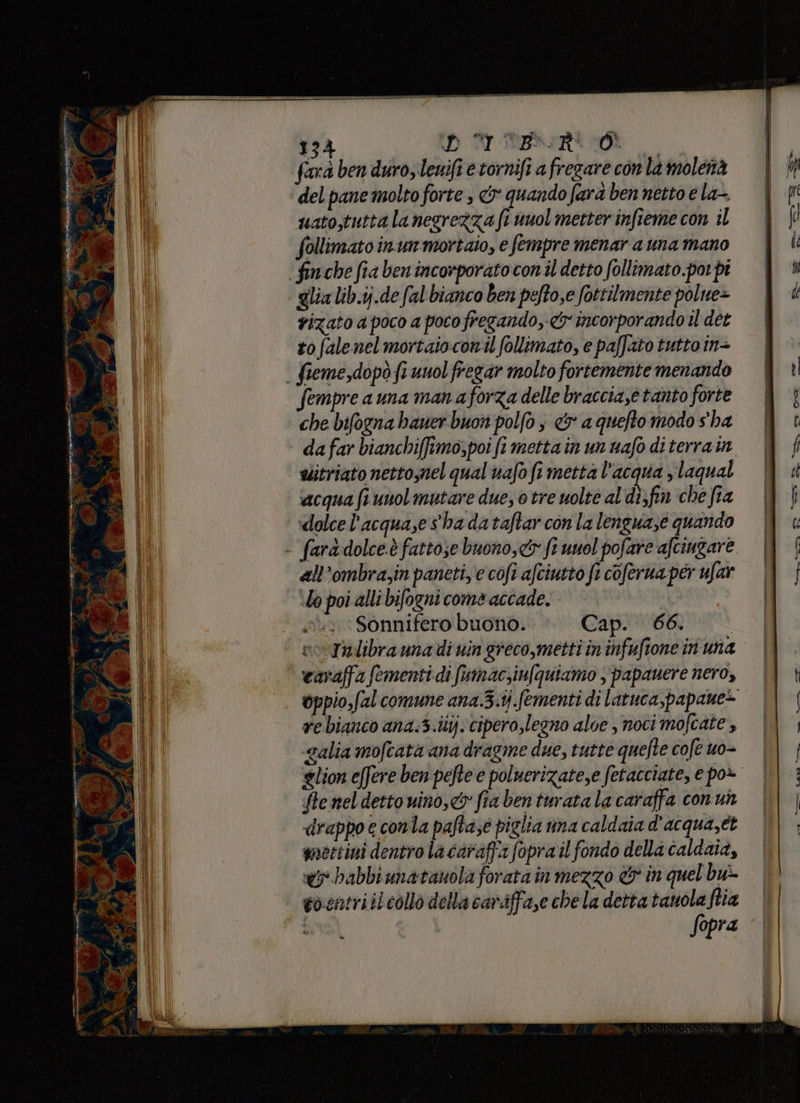 134 D I B R O
ſarà ben duro, leuiſi e torniſi a fregare con la molena
del pane molto forte, & quando ſarà ben netto e la-
uato, tutta la negrezza ſi uuol metter inſieme con il
ſollimato in un mortaio, e ſempre menar a una mano
fin che ſia ben incorporato con il detto ſollimato. poi pi
glia lib.ij. de ſal bianco ben peſto, e ſottilmente polue-
rizato a poco a poco fregando, & incorporando il det
to ſale nel mortaio con il ſollimato, e paſſato tutto in-
ſieme, dopò ſi uuol fregar molto fortemente menando
ſempre a una man a forza delle braccia, e tanto forte
che biſogna hauer buon polſo, & a queſto modo s'ha
da far bianchiſſimo, poi ſi metta in un uaſo di terra in
uitriato netto, nel qual uaſo ſi metta l'acqua, laqual
acqua ſi uuol mutare due, o tre uolte al dì, fin che ſia
dolce l'acqua, e s'ha da taſtar con la lengua, e quando
ſarà dolce è fatto, e buono, & ſi uuol poſare aſciugare
all'ombra, in paneti, e coſi aſciutto ſi cōſerua per uſar
lo poi alli biſogni come accade.
Sonnifero buono. Cap. 66.
Tu libra una di uin greco, metti in infuſione in una
caraffa ſementi di ſumac, iuſquiamo, papauere nero,
oppio, ſal comune ana.ʒ.ij. ſementi di latuca, papaue-
re bianco ana.ʒ.iiij. cipero, legno aloe, noci moſcate,
galia moſcata ana dragme due, tutte queſte coſe uo-
glion eſſere ben peſte e poluerizate, e ſetacciate, e po-
ſte nel detto uino, & ſia ben turata la caraffa con un
drappo e con la paſta, e piglia una caldaia d'acqua, et
mettini dentro la caraffa ſopra il fondo della caldaia,
& habbi una tauola forata in mezzo & in quel bu-
co entri il collo della caraffa, e che la detta tauola ſtia
ſopra